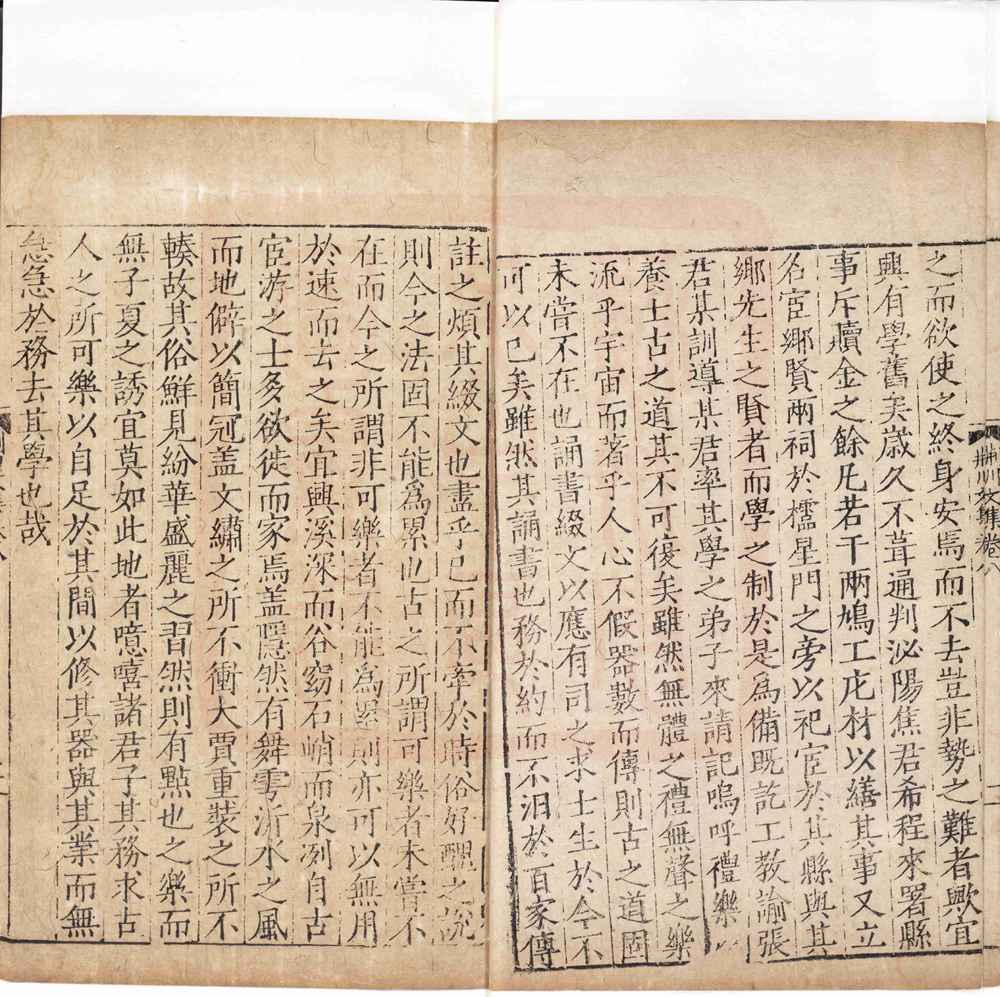 荆川文集卷八
之而欲使之終身安焉而不去豈非勢之難者歟宜
興有學舊矣歲久不葺通判泌陽焦君希程來署縣
事斥贖金之餘凡若干兩鳩工庀材以繕其事又立
名宦鄉賢兩祠於櫺星門之旁以祀宦於其縣與其
鄉先生之賢者而學之制於是爲備既訖工教諭張
君某訓導某君率其學之弟子來請記嗚呼禮樂以
養士古之道其不可復矣雖然無體之禮無聲之樂
流乎宇宙而著乎人心不假器數而傳則古之道固
未嘗不在也誦書綴文以應有司之求士生於今不
可以已矣雖然其誦書也務於約而不汨於百家傳
註之煩其綴文也盡乎已而不牽於時俗好醜之說
則今之法固不能爲累也古之所謂可樂者未嘗不
在而今之所謂非可樂者不能爲累則亦可以無用
於速而去之矣宜興溪深而谷窈石峭而泉冽自古
宦游之士多欲徙而家焉盖隱然有舞雩沂水之風
而地僻以簡冠盖文繡之所不衝大賈重裝之所不
輳故其俗鮮見紛華盛麗之習然則有點也之樂而
無子夏之誘宜莫如此地者噫嘻諸君子其務求古
人之所可樂以自足於其間以修其器與其業而無
急急於務去其學也哉